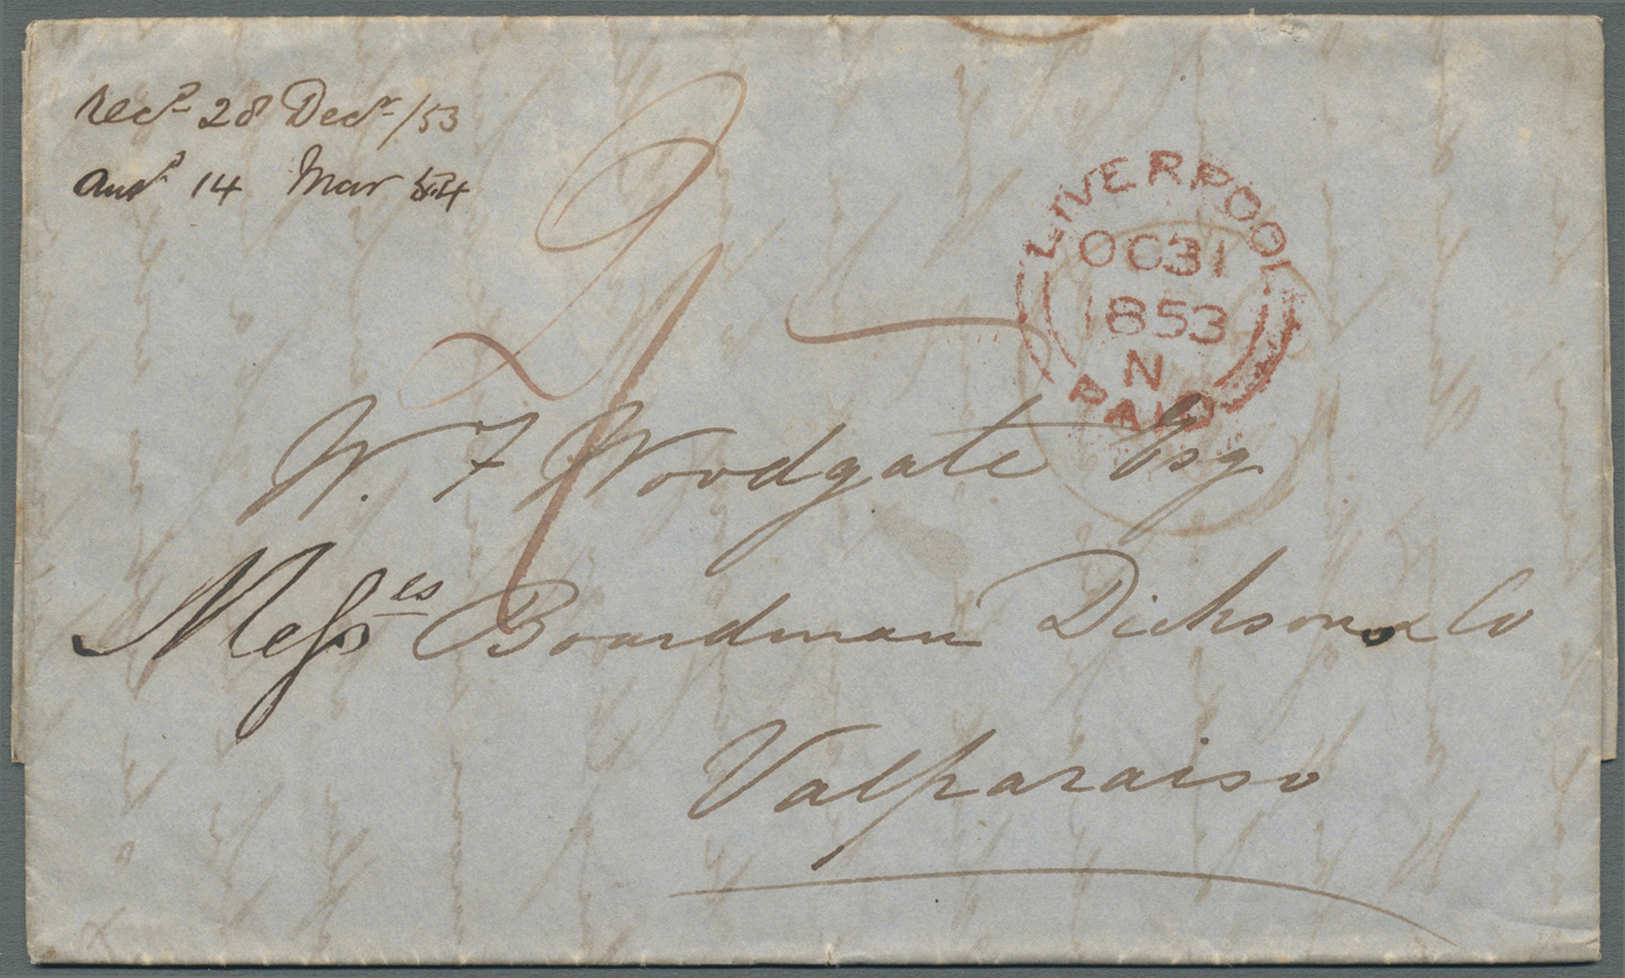 Recd 28 Decr /53
ansd 14 Mar 54
LIVERPOOL
OC 31
1853
N
PAID
2/-
W. F Woodgate Esq
Messes Boardman Dickson & Co
Valparaiso